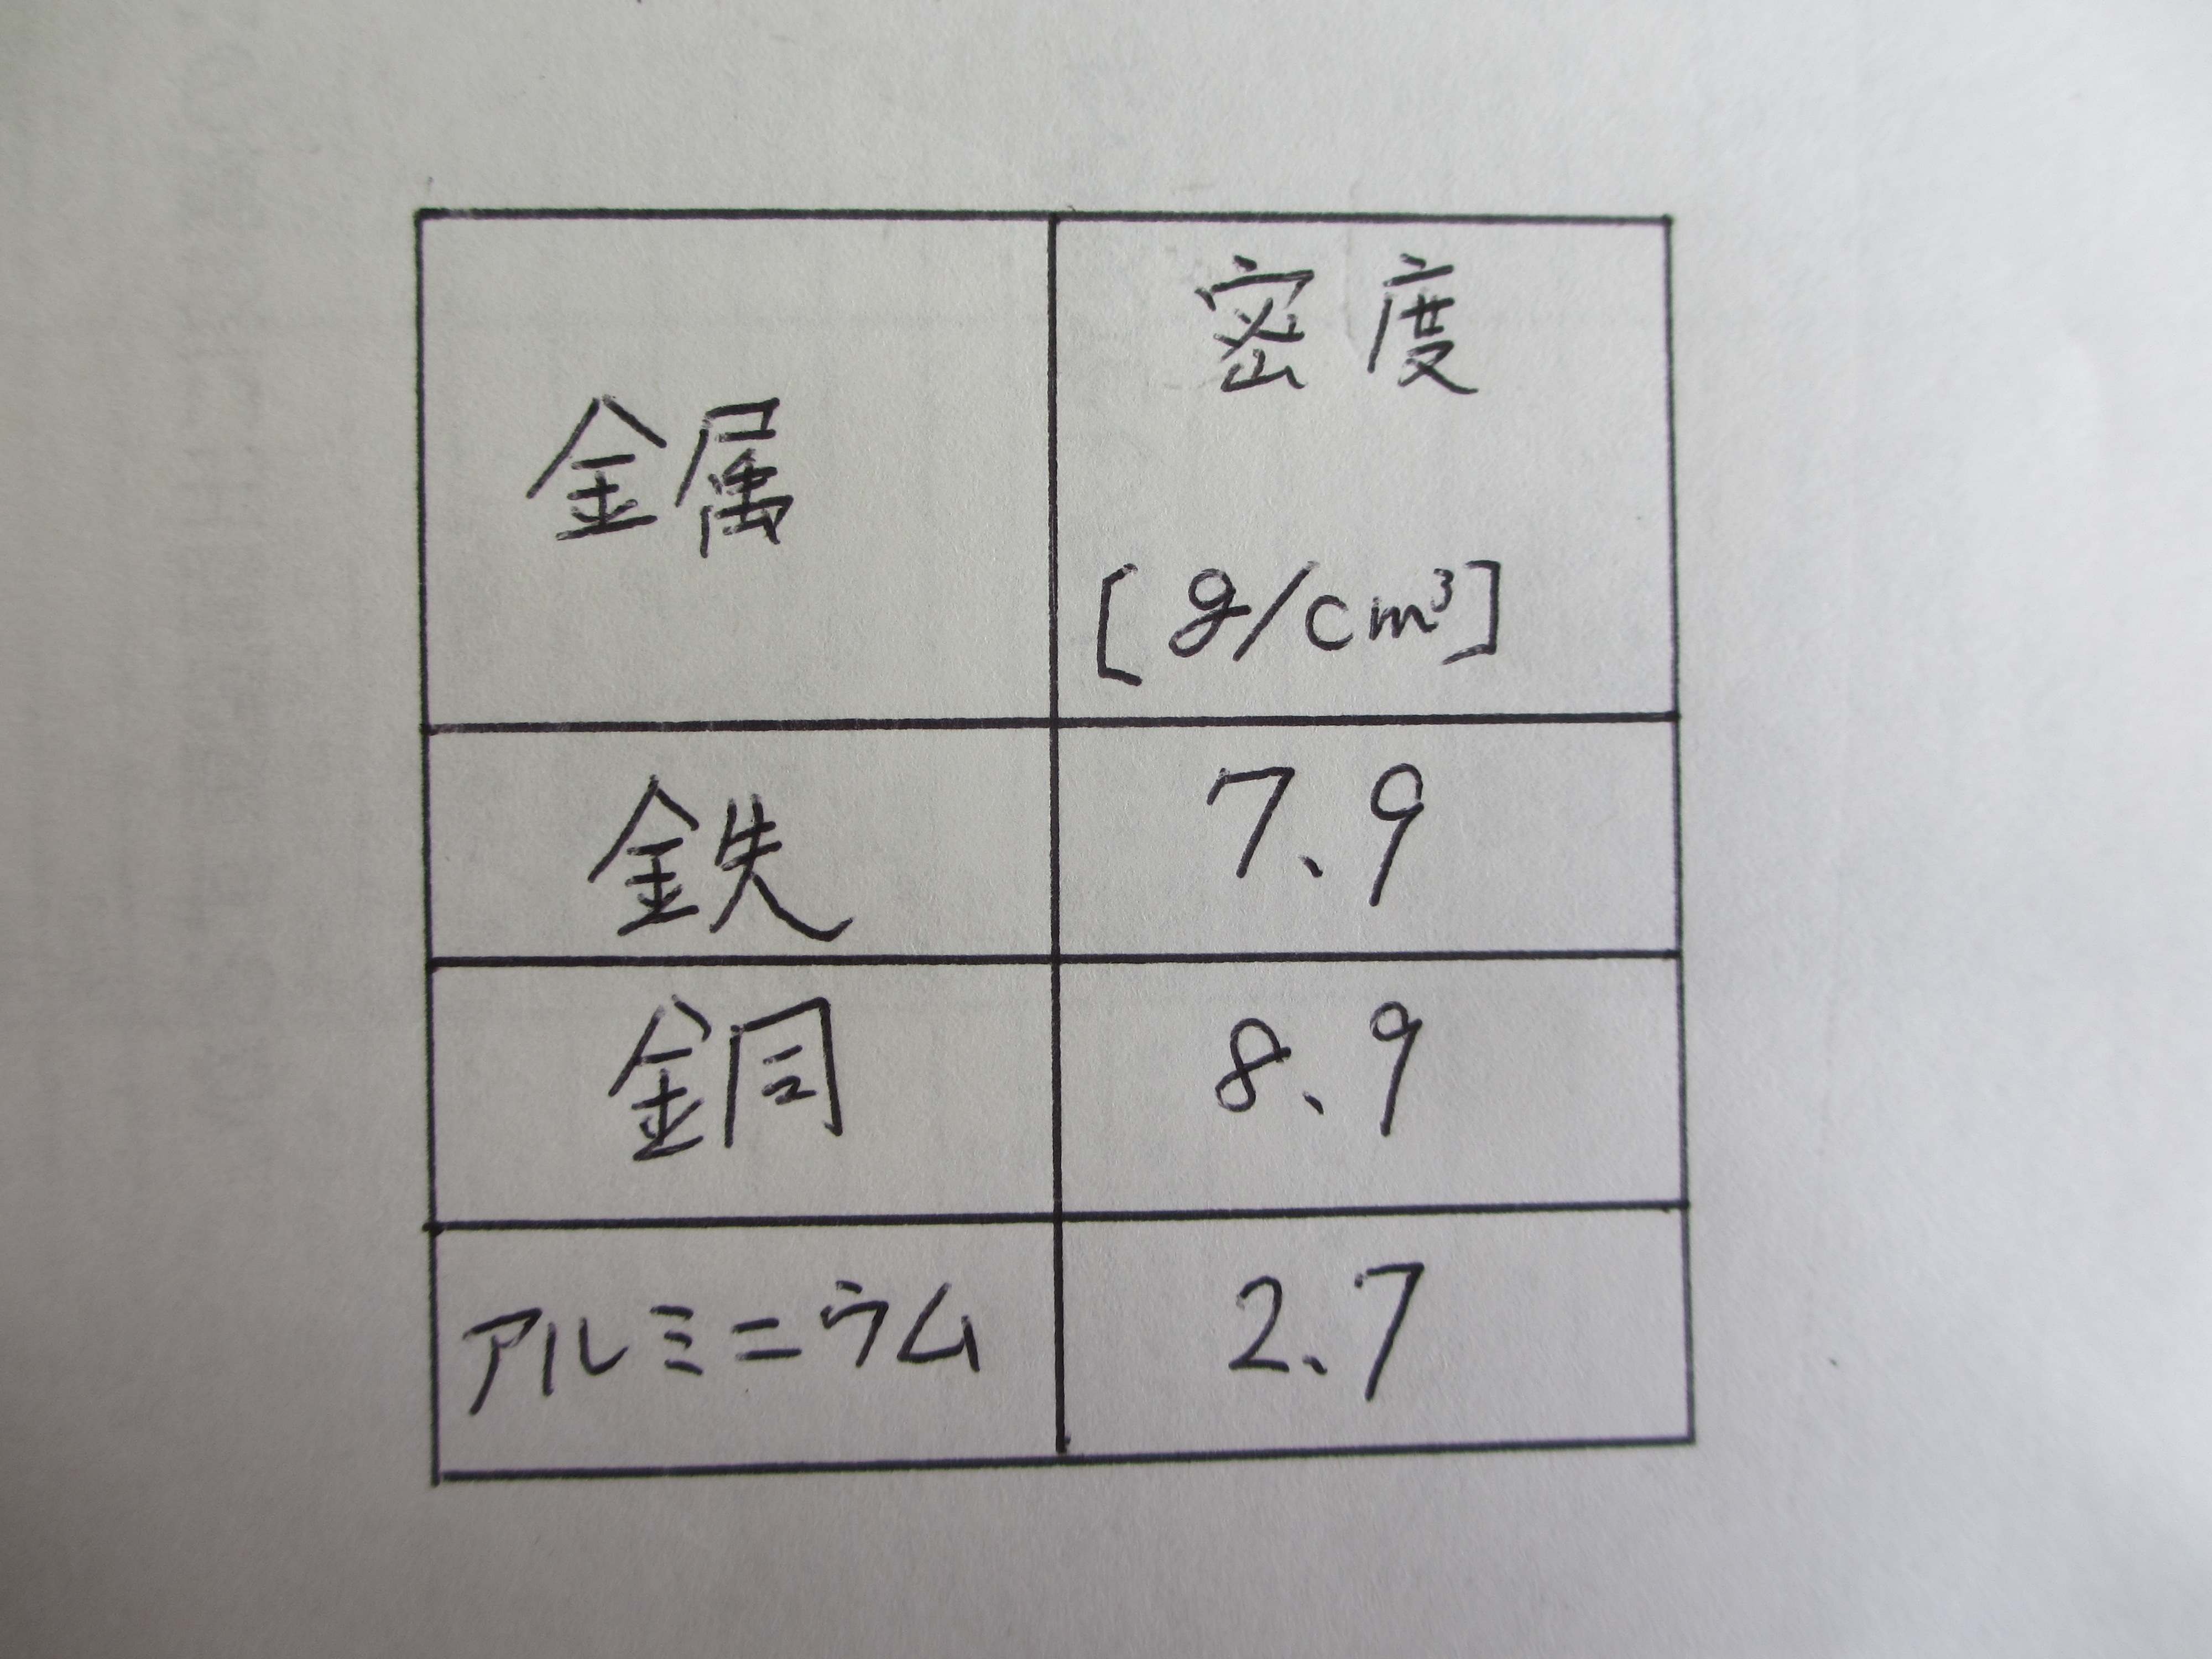 金属 密度
[g/cm³]
鉄 7.9
銅 8.9
アルミニウム 2.7